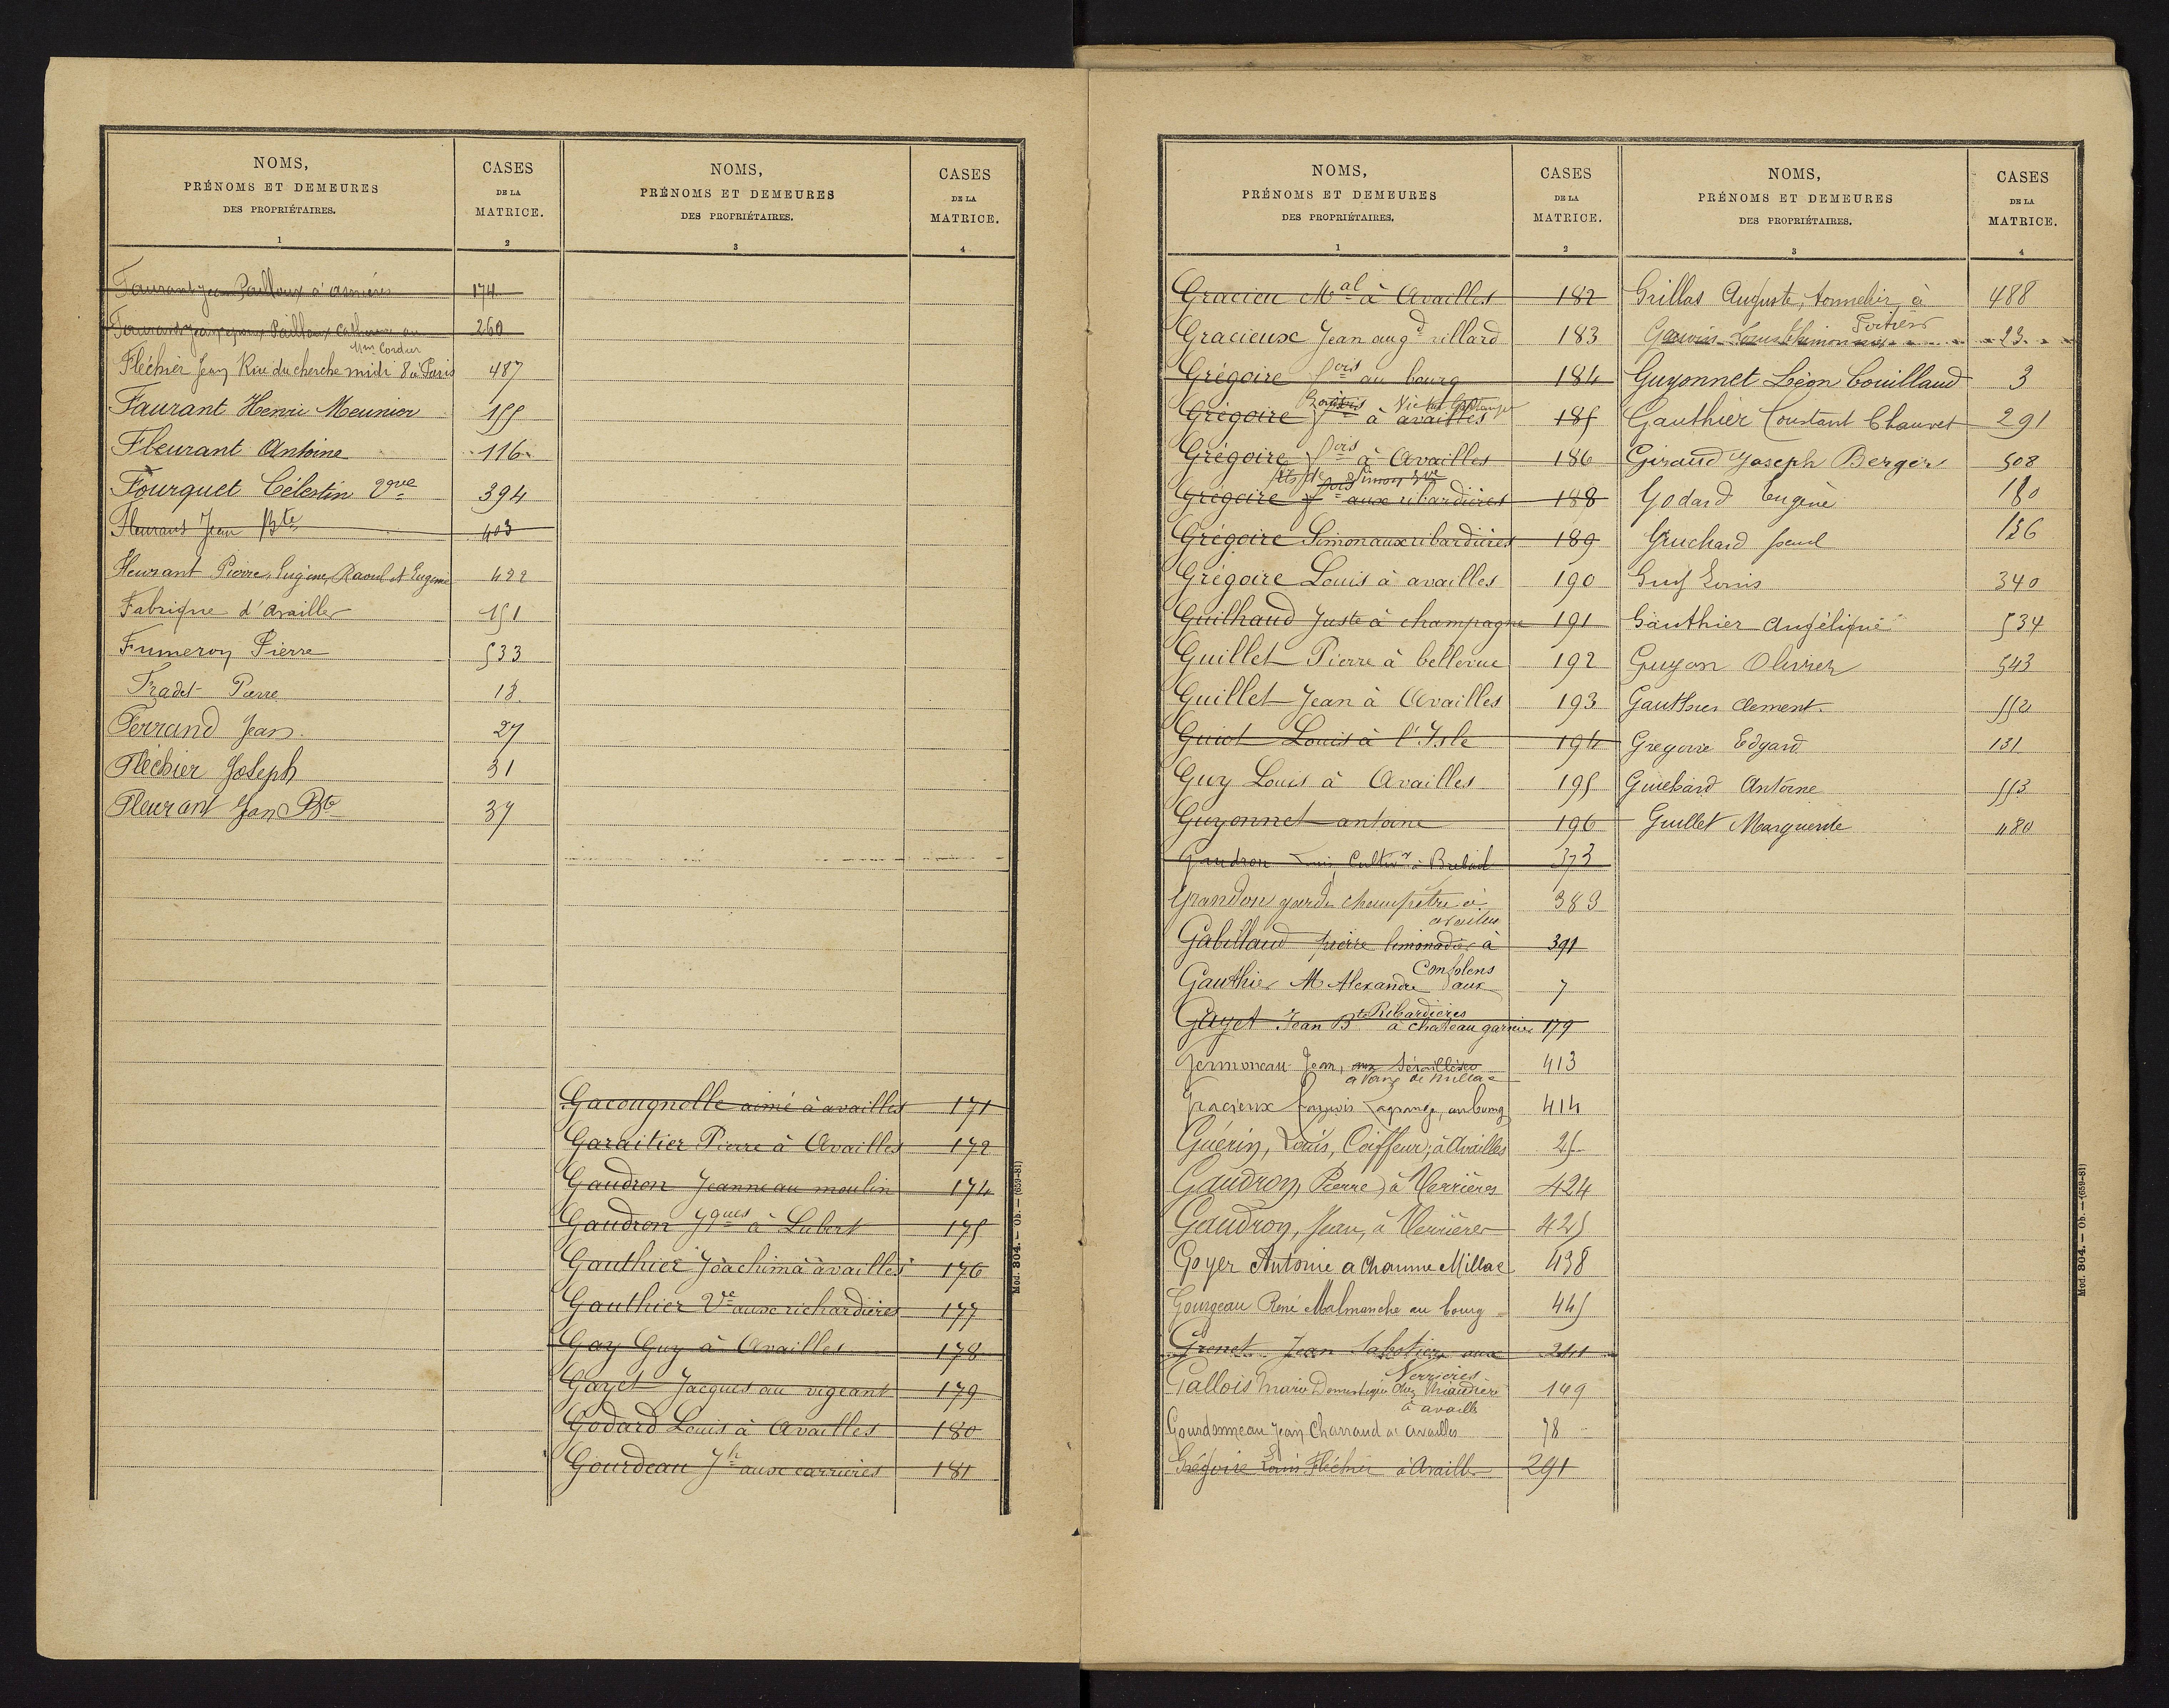 NOMS,
PRÉNOMS ET DEMEURES
DES PROPRIÉTAIRES.
1
CASES
DE LA
MATRICE.
2
Faurant Jean Pailloux à asnières 174
260
Mme Cordier
Fléchier Jean Rue du cherche midi 8 à Paris 487
Faurant Henri Meunier 155
Fleurant Antoine 116
Fourquet Célestin Vve 394
Fleurant Jean Bte 403
Fleurant Pierre, Eugène, Raoul et Eugenie 422
Fabrique d'Availles 151
Fumeron Pierre 533
Fradet Pierre 18
Ferrand Jean 27
Fléchier Joseph 31
Fleurant Jean Bte 37
NOMS,
PRÉNOMS ET DEMEURES
DES PROPRIÉTAIRES.
3
CASES
DE LA
MATRICE.
4
Gacougnolle aimé à availles 171
Garaitier Pierre à Availles 172
Gaudron Jeanne au moulin 174
Gaudron Jques à Lubert 175
Gauthier Joachim à availles 176
Gauthier Ve aux richardières 177
Gay Guy à Availles 178
Gayet Jacques au vigeant 179
Godard Louis à Availles 180
Gourdeau Jh aux carrières 181
Mod. 304. — Ob. — (659-81)
NOMS,
PRÉNOMS ET DEMEURES
DES PROPRIÉTAIRES.
1
CASES
DE LA
MATRICE.
2
Gracieu Mal à Availles 182
Gracieux Jean augd rillard 183
Grégoire fois au bourg 184
Grégoire à availles 185
Grégoire fois à Availles 186
Grégoire aux ribardières 188
Grégoire Simon aux ribardières 189
Grégoire Louis à availles 190
Guilhaud Juste à champagne 191
Guillet Pierre à bellevue 192
Guillet Jean à Availles 193
Guiot Louis à l'Isle 194
Guy Louis à Availles 195
Guyonnet antoine 196
Gaudron Louis Cultivr à 373
Grandon garde champêtre à 383
availles
Gabillaud pierre limonadier à 391
Confolens
Gauthier M Alexandre aux 7
Ribardières
Gayet Jean Bte à chateau garnier 179
Jean, 413
Gracieux françois Lagrange, au bourg 414
Guérin, Louis, Coiffeur, à Availles 25
Gaudron Pierre, à Verrières 424
Gaudron, Jean, à Verrières 425
Goyer Antoine a Chaume Millac 438
Gourgeau René Malmanche au bourg 445
Grenet Jean Sabotier aux 241
Verrières
Gallois Marie Domestique chez 149
à availles
Gourdonneau Jean Charraud à availles 78
Grégoire Louis Fléchier à Availles 291
NOMS,
PRÉNOMS ET DEMEURES
DES PROPRIÉTAIRES.
3
CASES
DE LA
MATRICE.
4
Grillas Auguste, tonnelier, à 488
Poitiers
Gauvin Louis 23
Guyonnet Léon Couillaud 3
Gauthier Constant Chauvet 291
Giraud Joseph Berger 508
Godard Eugène 180
Gruchard 156
Guy Louis 340
Gauthier Angélique 534
Guyon Olivier 543
Gauthier Clement 552
Gregoire Edgard 131
Guichard Antoine 553
Guillet Marguerite 480
Mod. 304. — Ob. — (659-81)